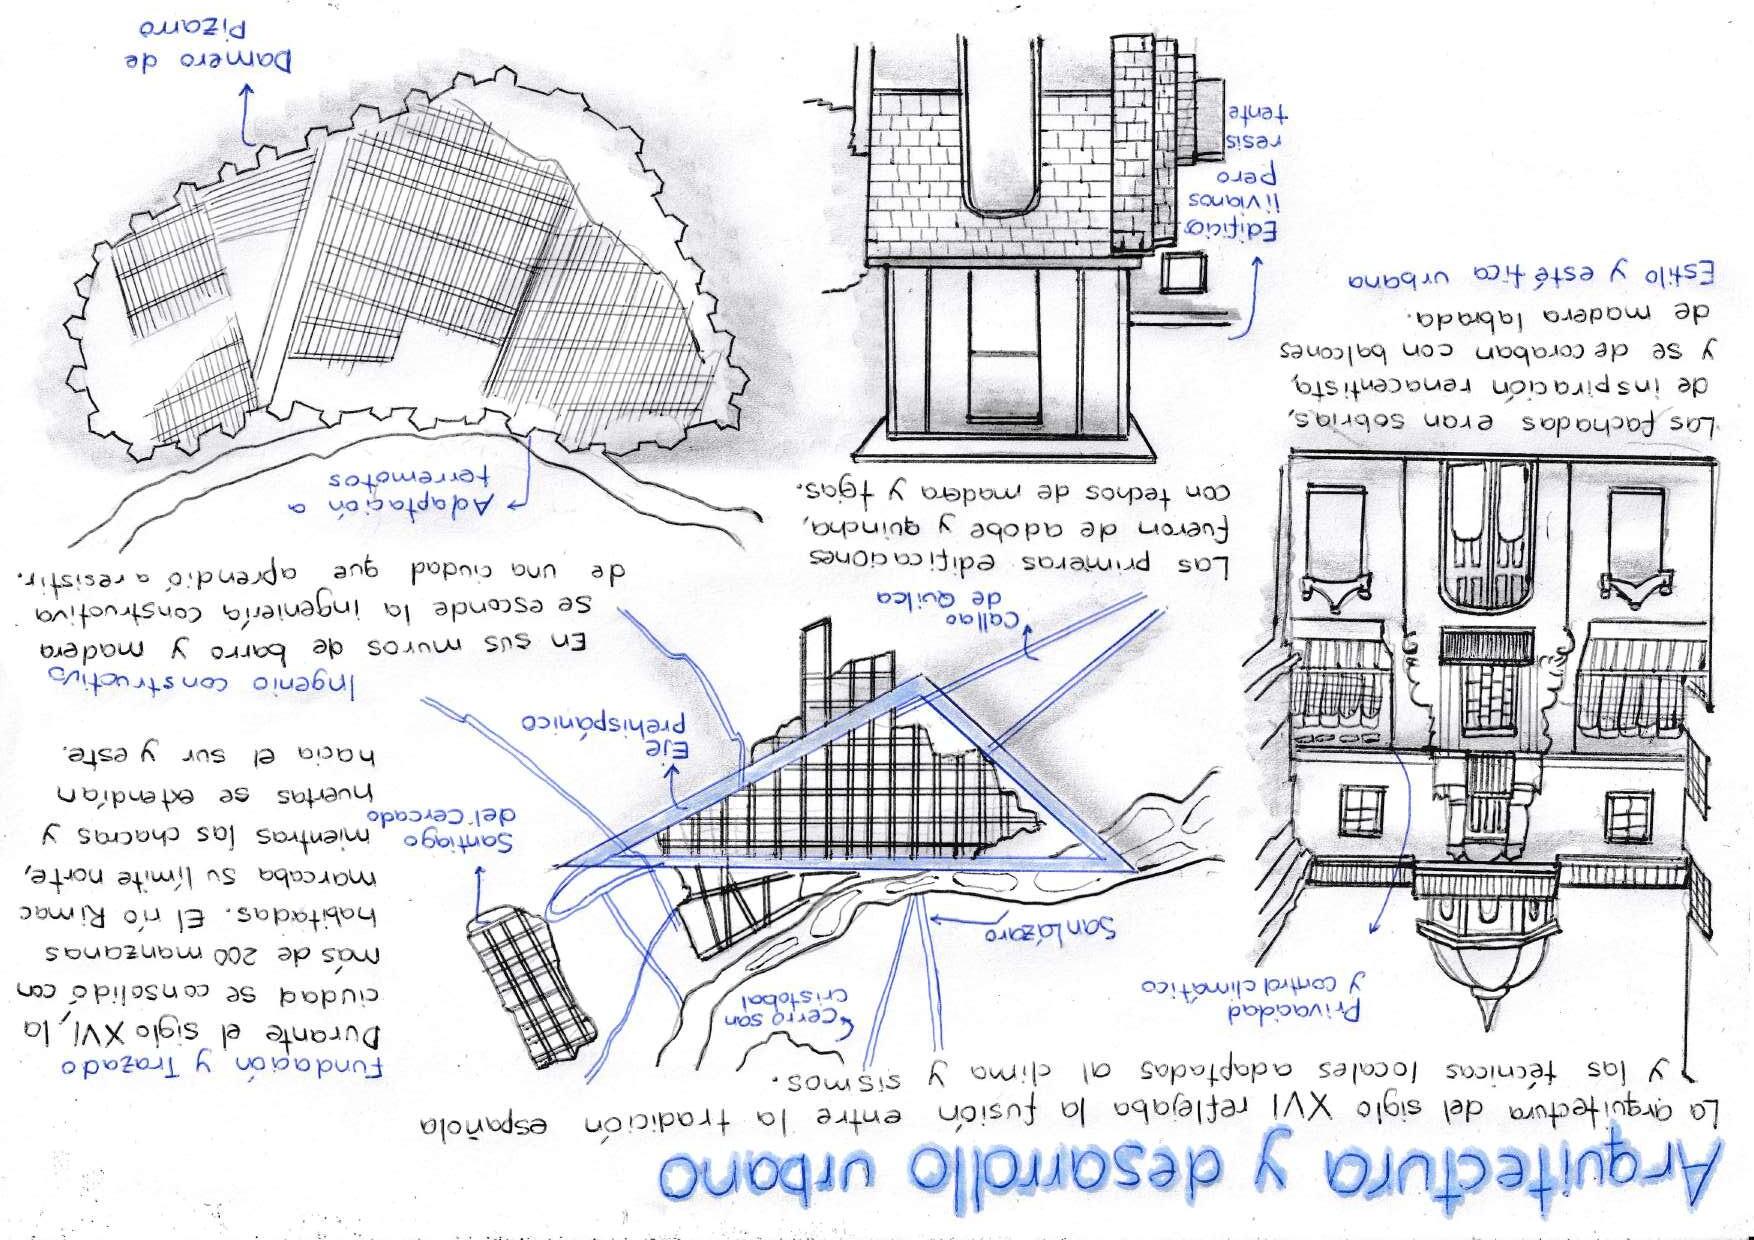 Arquitectura y desarrollo urbano
La arquitectura del siglo XVI reflejaba la fusión entre la tradición española
y las técnicas locales adaptadas al clima y sismos.
Privacidad
y control climático
Las fachadas eran sobrias,
de inspiración renacentista,
y se decoraban con balcones
de madera labrada.
Estilo y estética urbana
Cerro san
cristobal
San Lázaro
Santiago
del Cercado
Eje
prehispánico
Callao
de Quilca
Fundación y Trazado
Durante el siglo XVI, la
ciudad se consolidó con
más de 200 manzanas
habitadas. El río Rimac
marcaba su límite norte,
mientras las chacras y
huertas se extendían
hacia el sur y este.
Las primeras edificaciones
fueron de adobe y quincha,
con techos de madera y tejas.
Edificios
livianos
pero
resis
tente
Ingenio constructivo
En sus muros de barro y madera
se esconde la ingeniería constructiva
de una ciudad que aprendió a resistir.
Adaptación a
terremotos
Damero de
Pizarro